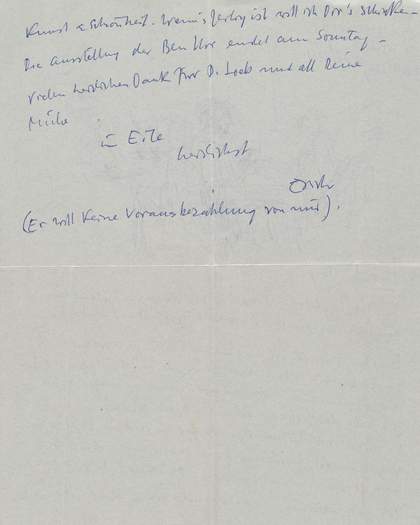 Kunst & Schönheit. Wenn's fertig ist will ich Dir's schicken –
Die Ausstellung der Ben Uri endet am Sonntag –
Vielen herzlichen Dank für D. Loeb und all Deine
Mühe
in Eile
herzlichst
(Er will keine Vorausbezahlung von mir).